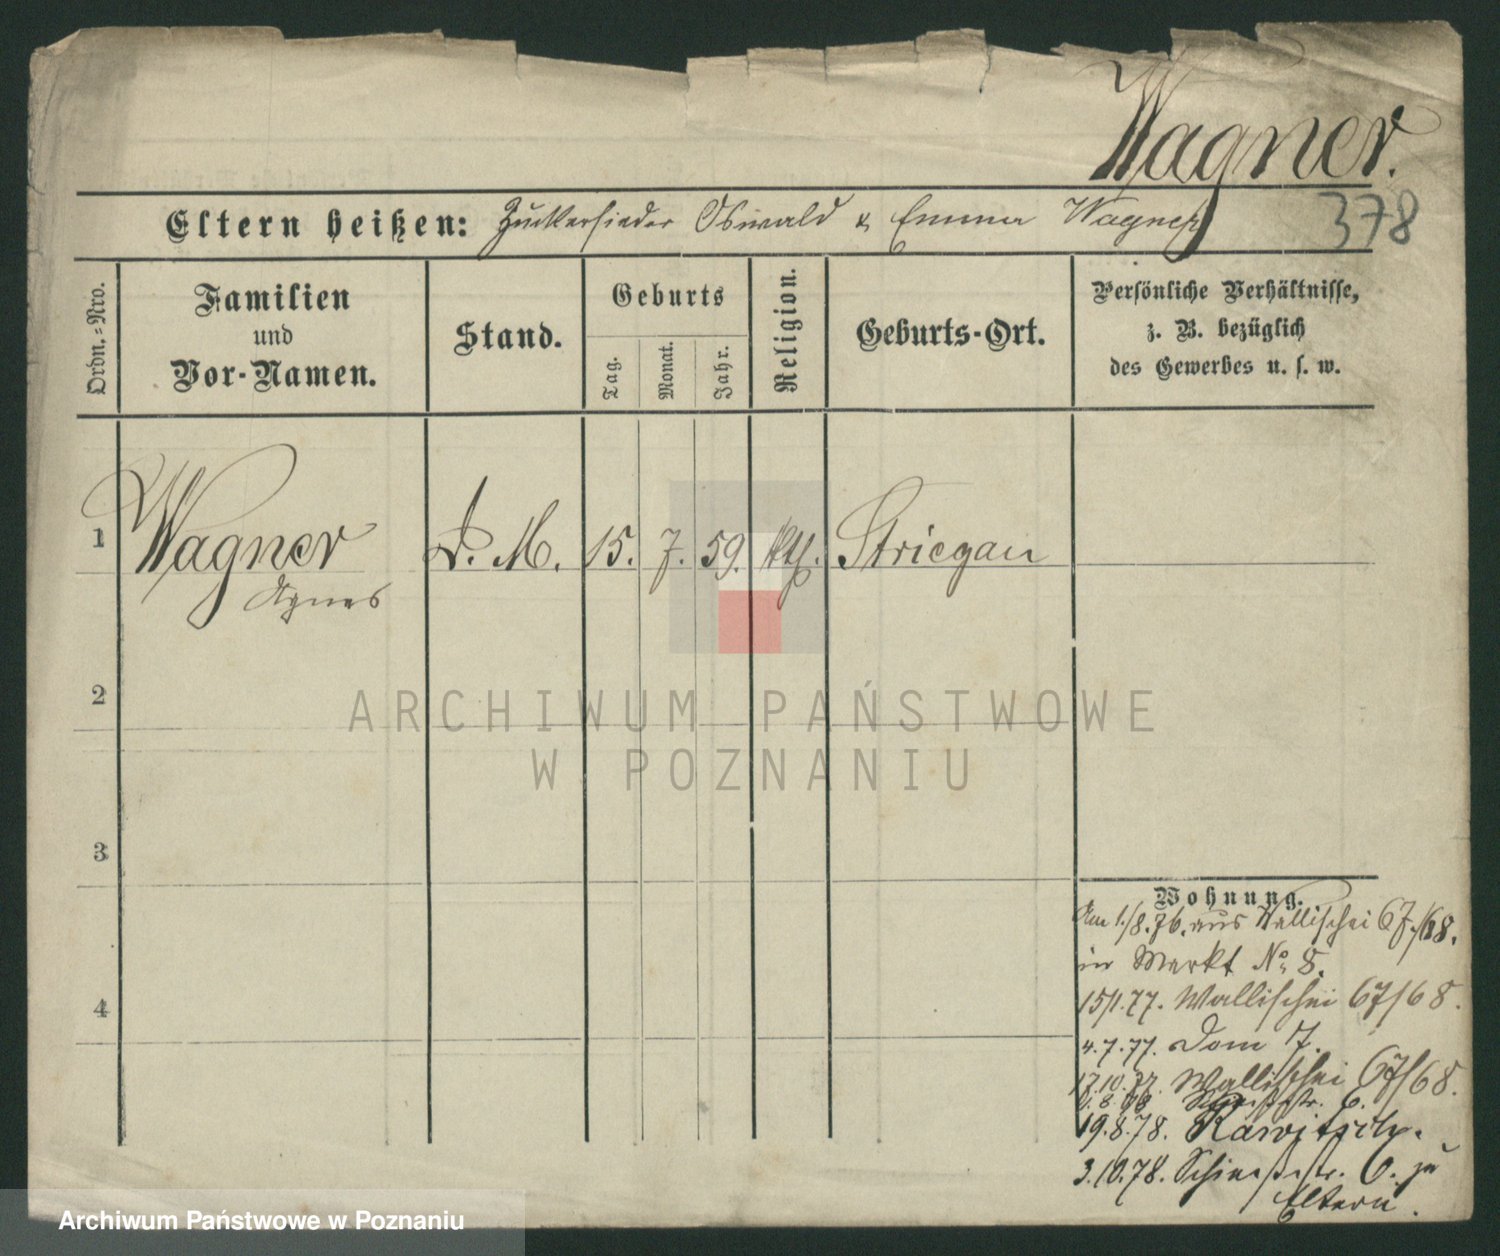 Wagner.
378
Eltern heißen: Zuckersieder Oswald & Emma Wagner
Ordn.-Nro.
Familien
und
Vor-Namen.
Stand.
Geburts
Tag.
Monat.
Jahr.
Religion.
Geburts-Ort.
Persönliche Verhältnisse,
z. B. bezüglich
des Gewerbes u. s. w.
1 Wagner D. M. 15. 7. 59. kth. Striegau
Agnes
2
ARCHIWUM PAŃSTWOWE
W POZNANIU
3
Wohnung.
Am 1./8.76. aus Wallischei 67./68.
in Markt No. 8.
4
15/1.77. Wallischei 67/68.
4.7.77. Dom 7.
17.10.77. Wallischei 67/68.
8.78 6.
19.8.78. Rawitsch.
3.10.78. Schießstr. 6. zu
Eltern.
Archiwum Państwowe w Poznaniu